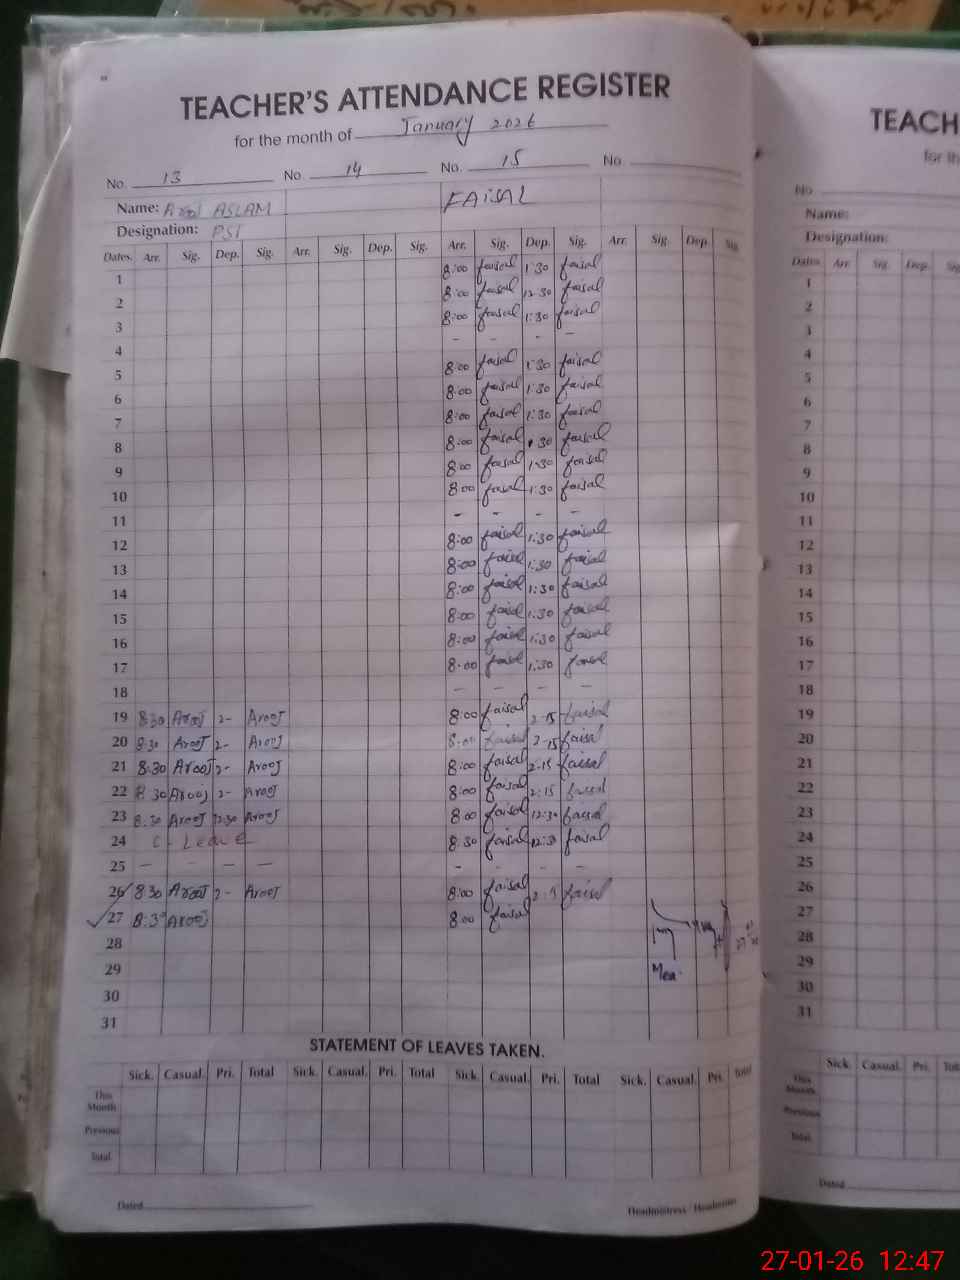 TEACHER'S ATTENDANCE REGISTER
for the month of January 2026
No. 13 No. 14 No. 15 No.
Name: Arooj ASLAM FAISAL
Designation: PST
Dates. Arr. Sig. Dep. Sig. Arr. Sig. Dep. Sig. Arr. Sig. Dep. Sig. Arr. Sig. Dep. Sig.
1 8:00 faisal 1:30 faisal
2 8:00 faisal 12:30 faisal
3 8:00 faisal 1:30 faisal
4 - - - -
5 8:00 faisal 1:30 faisal
6 8:00 faisal 1:30 faisal
7 8:00 faisal 1:30 faisal
8 8:00 faisal 1:30 faisal
9 8:00 faisal 1:30 faisal
10 8:00 faisal 1:30 faisal
11 - - - -
12 8:00 faisal 1:30 faisal
13 8:00 faisal 1:30 faisal
14 8:00 faisal 1:30 faisal
15 8:00 faisal 1:30 faisal
16 8:00 faisal 1:30 faisal
17 8:00 faisal 1:30 faisal
18 - - - -
19 8:30 Arooj 2- Arooj 8:00 faisal 2-15 faisal
20 8:30 Arooj 2- Arooj 8:00 faisal 2-15 faisal
21 8:30 Arooj 2- Arooj 8:00 faisal 2:15 faisal
22 8:30 Arooj 2- Arooj 8:00 faisal 2:15 faisal
23 8:30 Arooj 12:30 Arooj 8:00 faisal 12:30 faisal
24 C- Leave 8:30 faisal 12:30 faisal
25 - - - - - - - -
26 8:30 Arooj 2- Arooj 8:00 faisal faisal
27 8:30 Arooj 8:00 faisal
28
29 Mea
30
31
STATEMENT OF LEAVES TAKEN.
Sick. Casual. Pri. Total Sick. Casual. Pri. Total Sick. Casual. Pri. Total Sick. Casual. Pri. Total
This Month
Previous
Total
Dated Headmistress / Headmaster
TEACH
for th
No
Name:
Designation:
Dates Arr. Sig. Dep. Sig
1
2
3
4
5
6
7
8
9
10
11
12
13
14
15
16
17
18
19
20
21
22
23
24
25
26
27
28
29
30
31
Sick. Casual. Pri. Tot
This Month
Previous
Total
Dated
27-01-26 12:47